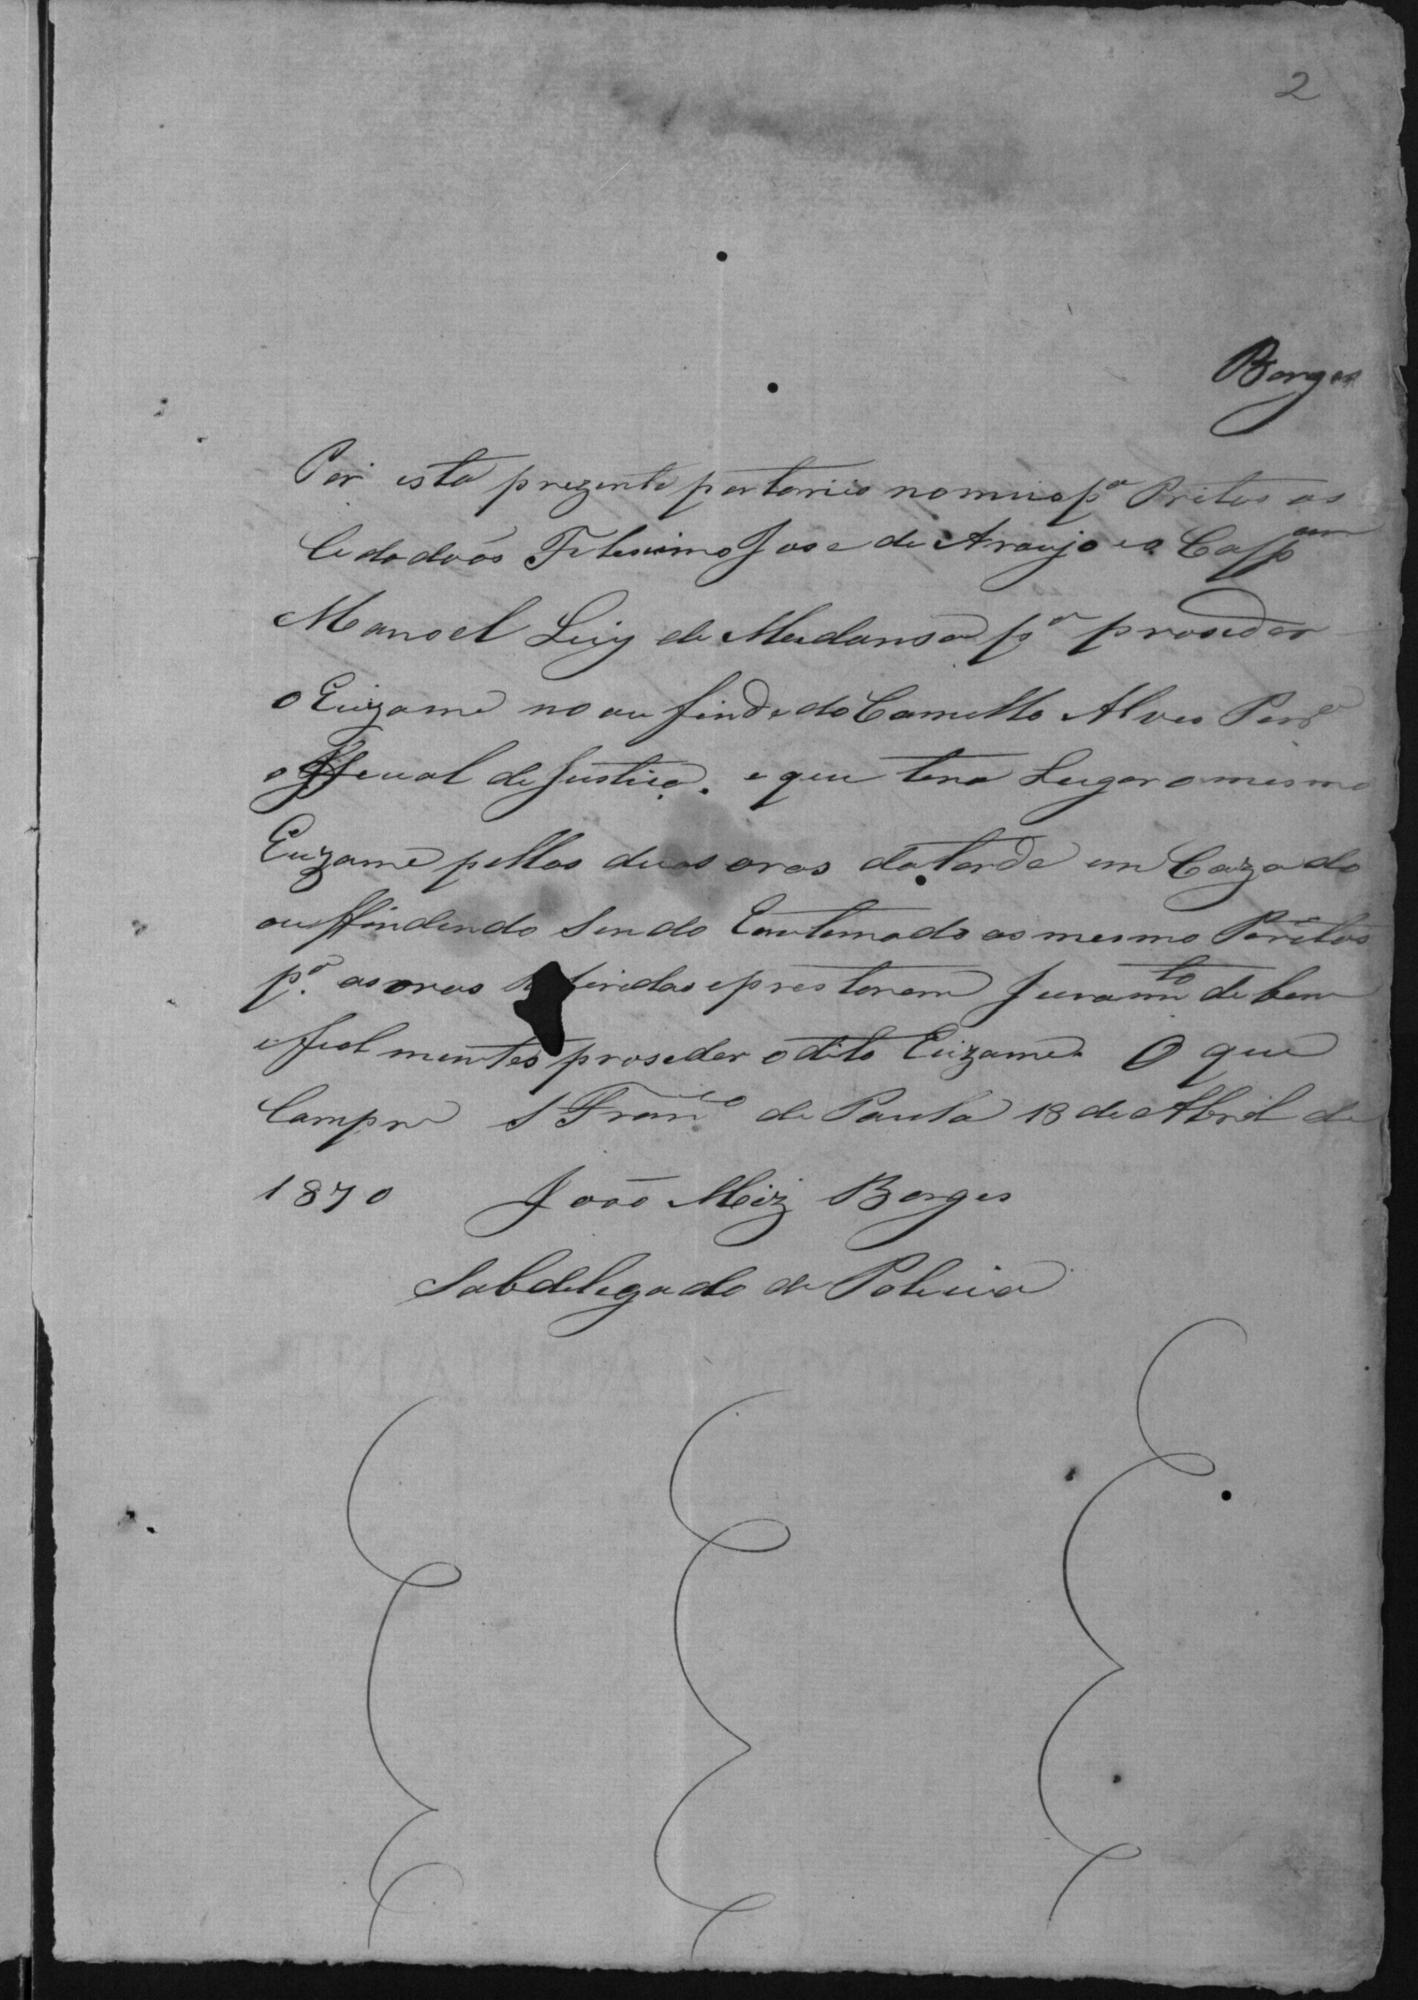 2
Borges
Por esta prezente portaria nomeio p.ª Pritos os
Cidadoõs José de Araujo e o Cap.am
Manoel Luiz de p.ª proseder
o Euzame no au findido Camillo Alves Per.ª
official de Justica. e que tera Lugar o mesmo
Euzame pellas duas oras da tarde em Caza do
auffindido Sendo os mesmo Peritos
p.ª as oras feridas e prestarem Juramto de bem
e fielmentes proseder o dito Euzame O que
Cumpra S Franco de Paula 18 de Abril de
1870 João Miz Borges
Subdelegado de Policia